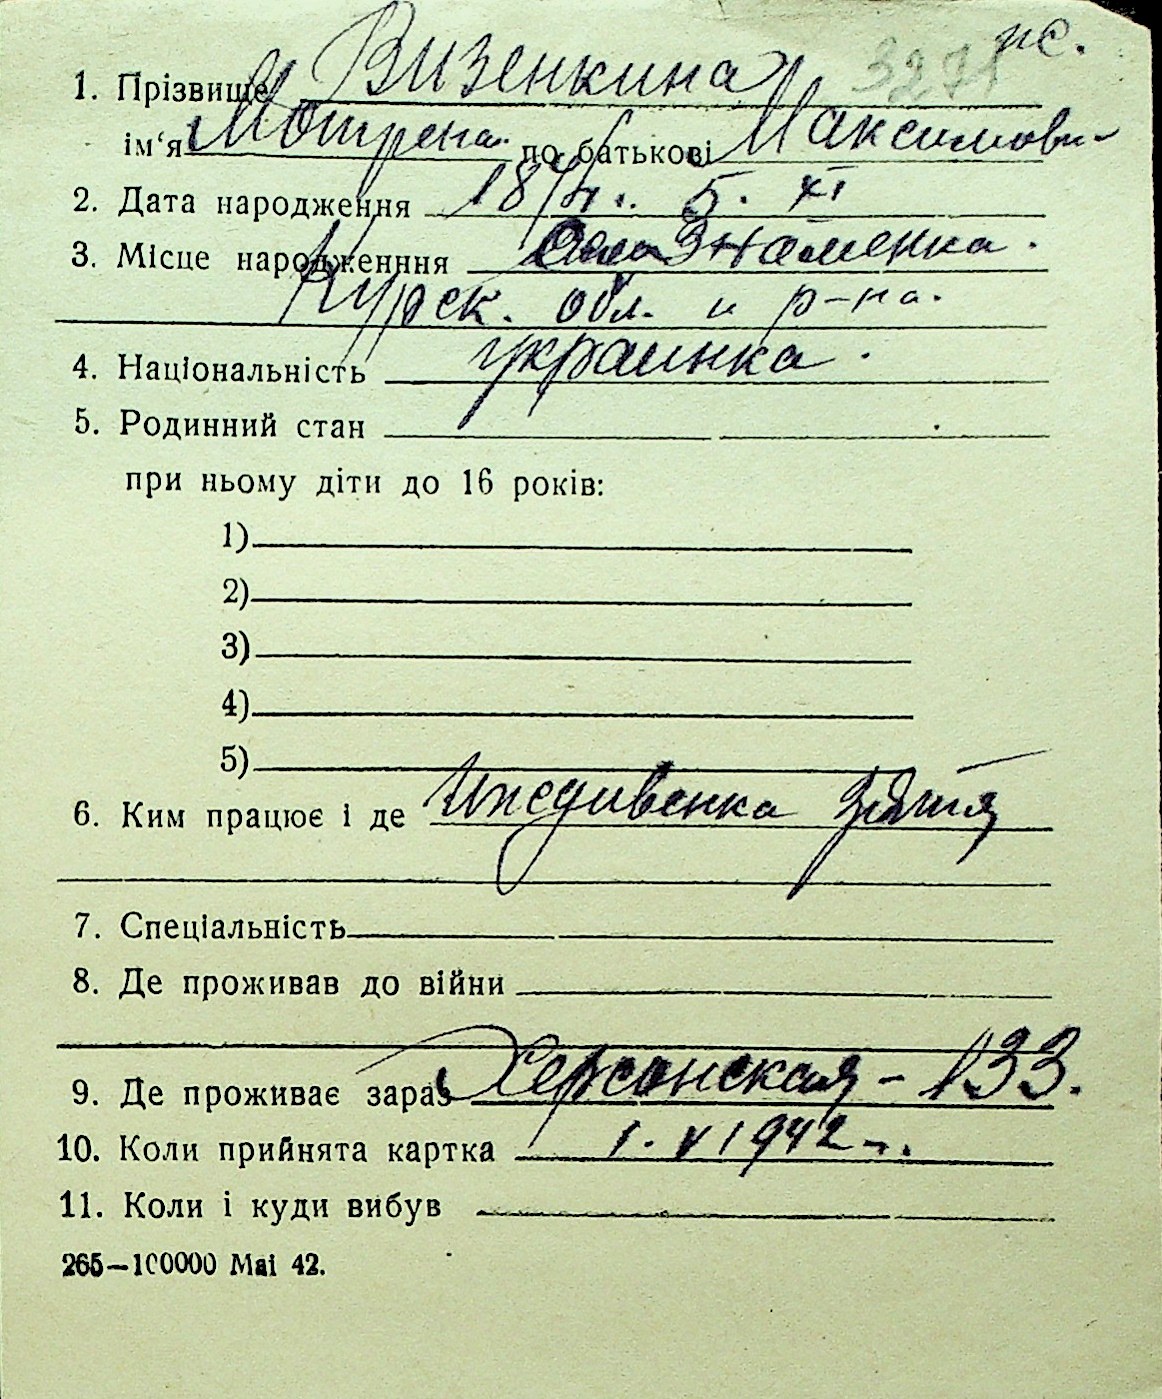 пс.
3271
1. Прізвище Визенкина
ім'я Мотрена по батькові Максимовн
2. Дата народження 1874 г. 5. XI
3. Місце народженння Село Знаменка.
Курск. обл. и р-на.
4. Національність украинка.
5. Родинний стан
при ньому діти до 16 років:
1)
2)
3)
4)
5)
6. Ким працює і де Иждивенка зятя
7. Спеціальність
8. Де проживав до війни
9. Де проживає зараз Херсонская - 133.
10. Коли прийнята картка 1. V 1942 г.
11. Коли і куди вибув
265—100000 Mai 42.